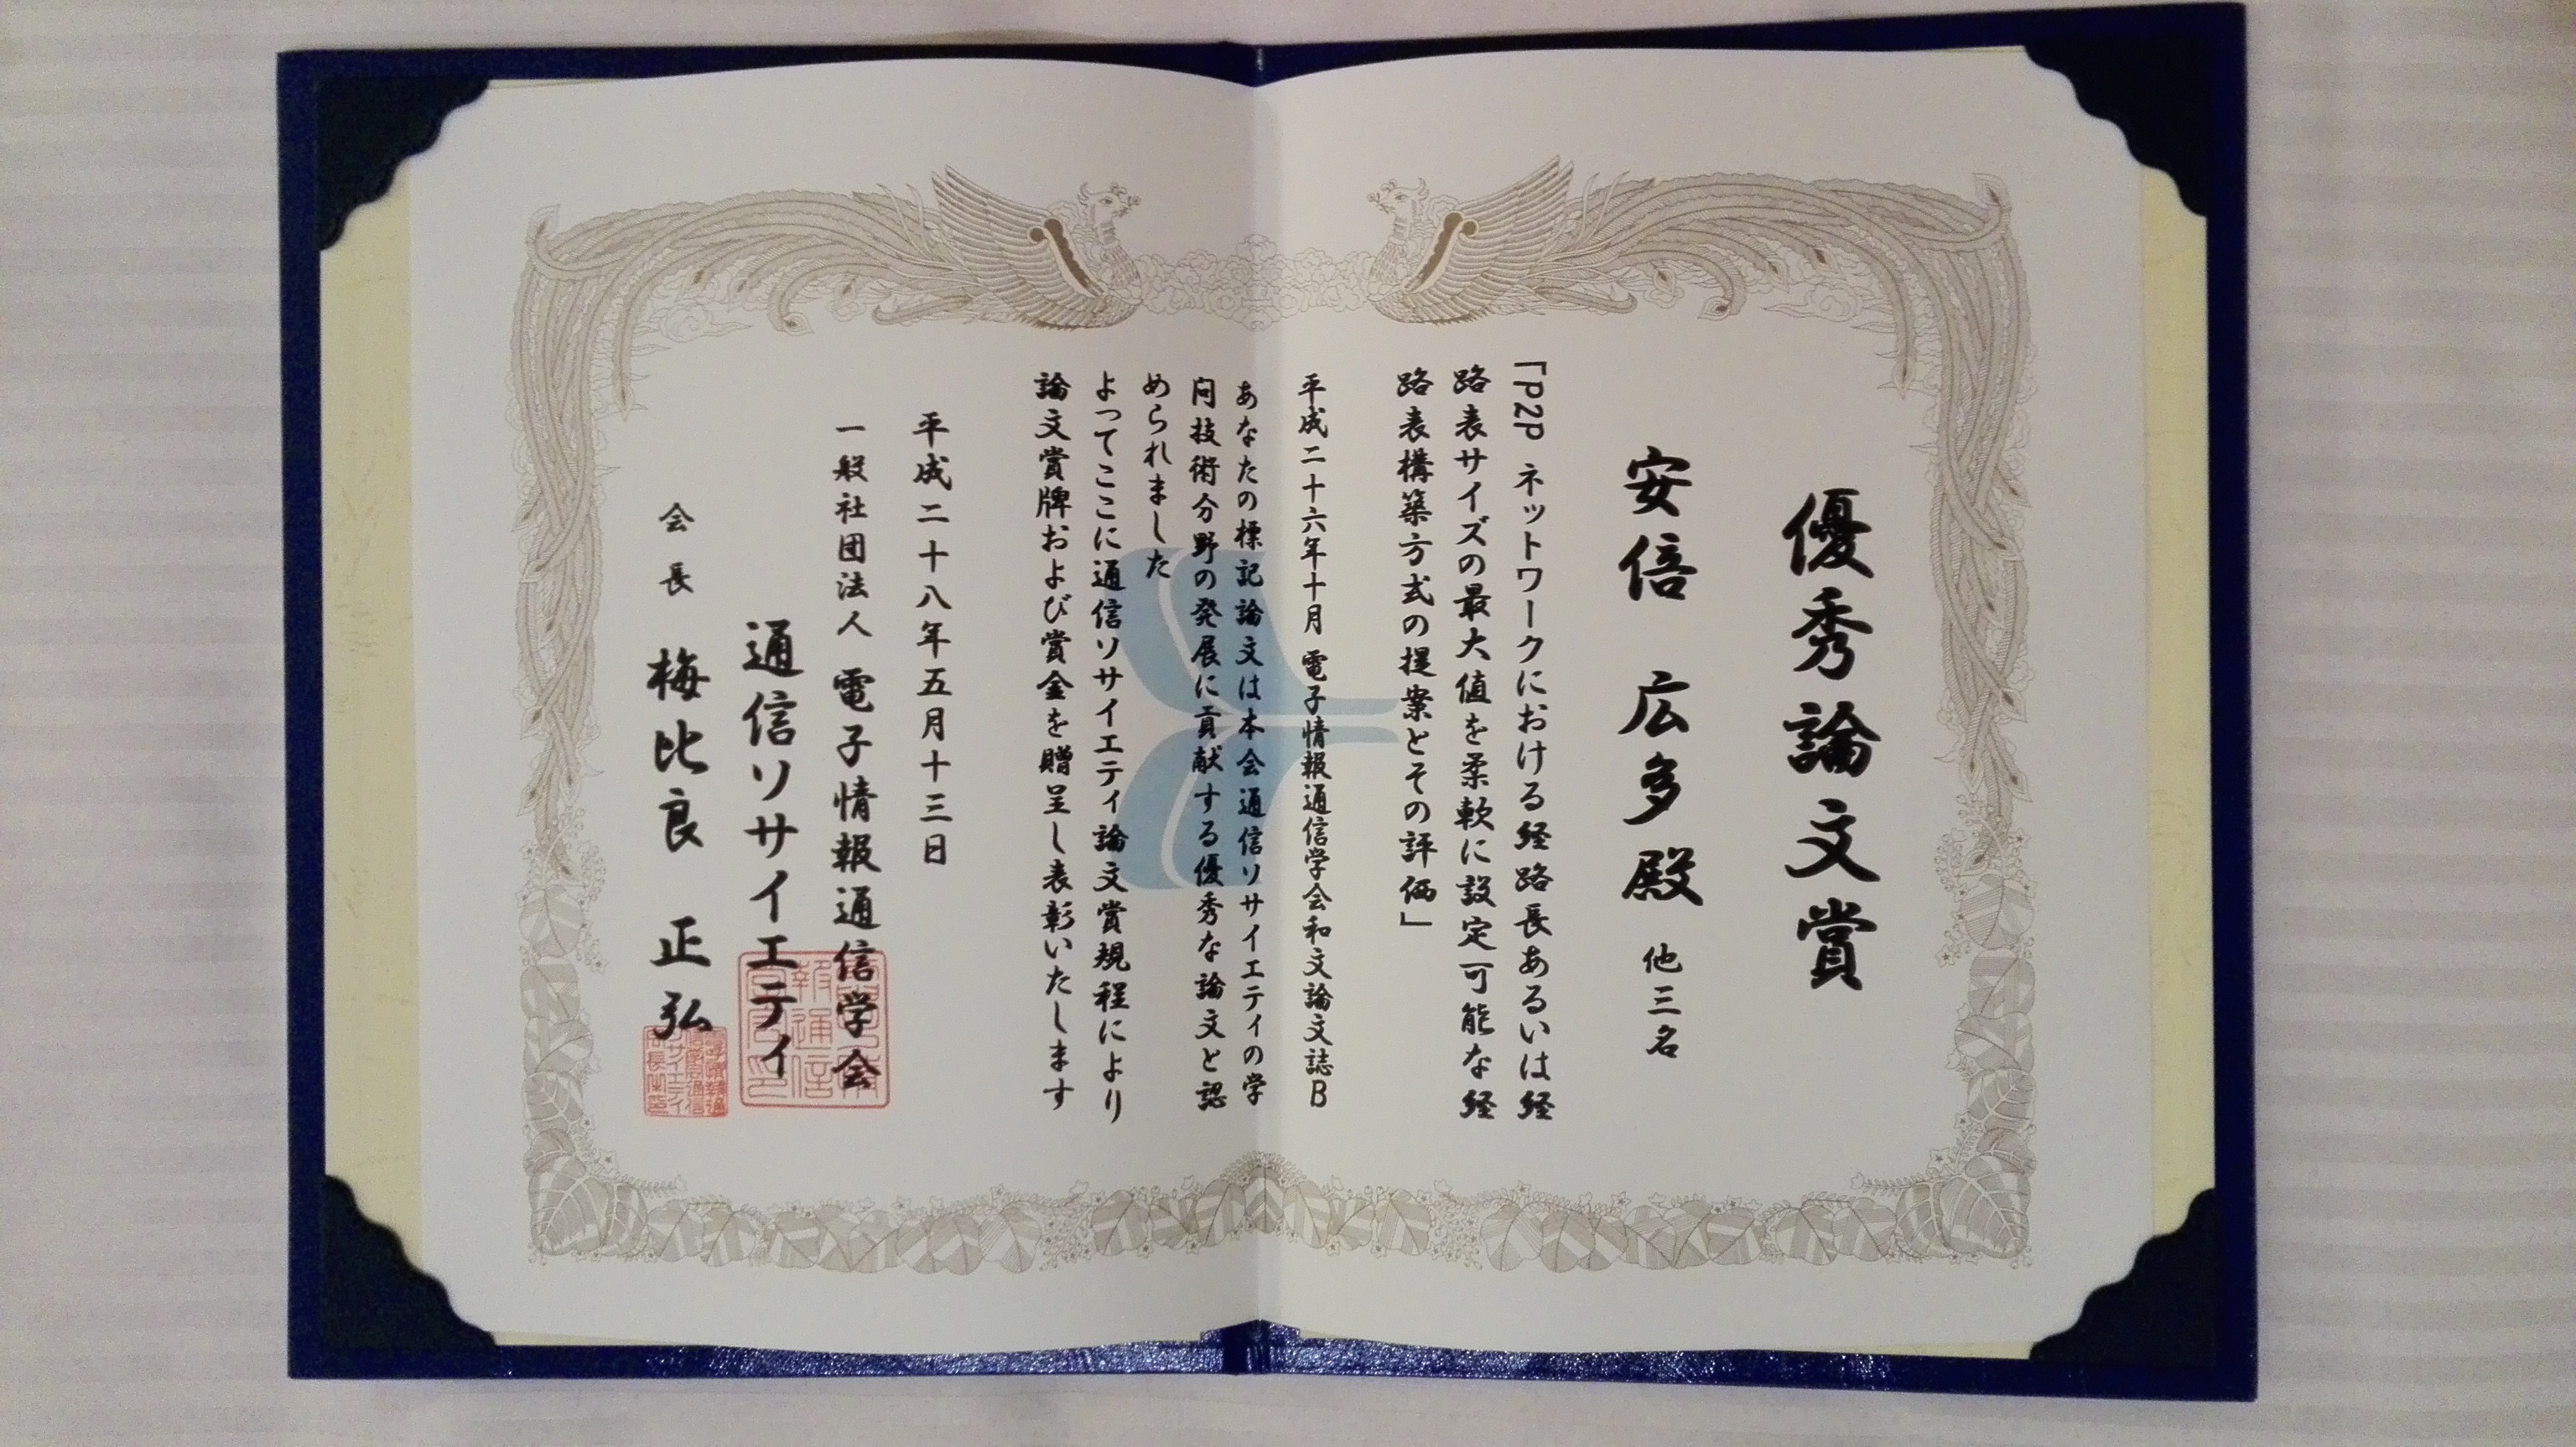 優秀論文賞
安倍 広多 殿 他三名
「P2P ネットワークにおける経路長あるいは経
路表サイズの最大値を柔軟に設定可能な経
路表構築方式の提案とその評価」
平成二十六年十月 電子情報通信学会和文論文誌B
あなたの標記論文は本会通信ソサイエティの学
問技術分野の発展に貢献する優秀な論文と認
められました
よってここに通信ソサイエティ論文賞規程により
論文賞牌および賞金を贈呈し表彰いたします
平成二十八年五月十三日
一般社団法人 電子情報通信学会
通信ソサイエティ
会長 梅比良 正弘